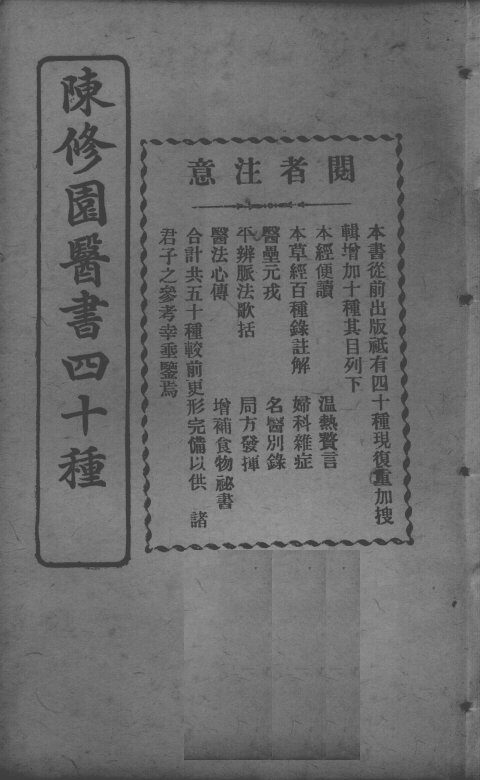 閱者注意
本書從前出版祗有四十種現復重加搜
輯增加十種其目列下
本經便讀 溫熱贅言
本草經百種錄註解 婦科雜症
醫壘元戎 名醫別錄
平辨脈法歌括 局方發揮
醫法心傳 增補食物祕書
合計共五十種較前更形完備以供 諸
君子之參考幸垂鑒焉
陳修園醫書四十種